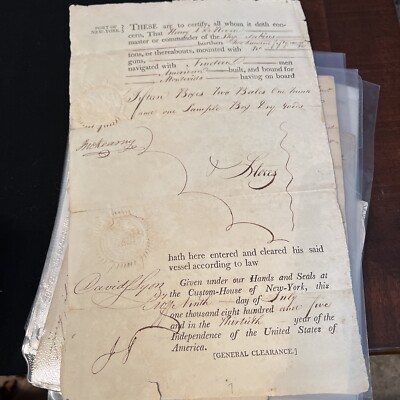 PORT OF
NEW-YORK.
THESE are to certify, all whom it doth con-
cern, That Henry
master or commander of the Ship
burthen
tons, or thereabouts, mounted with no
guns, navigated with Nineteen men
American built, and bound for
having on board
Fifteen Boxes two Bales One trunk
and one Sample Box Dry Goods
& Stores
hath here entered and cleared his said
vessel according to law
Given under our Hands and Seals at
the Custom-House of New-York, this
Ninth day of July
one thousand eight hundred and five
and in the Thirtieth year of the
Independence of the United States of
America.
[GENERAL CLEARANCE.]